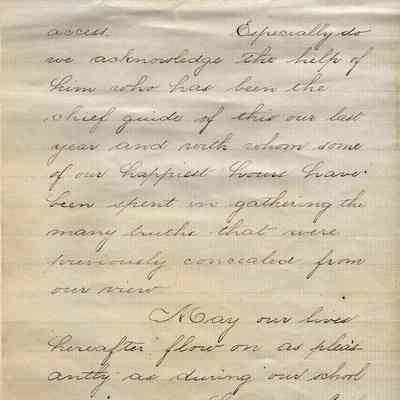 access. Especially do
we acknowledge the help of
him who has been the
chief guide of this our last
year and with whom some
of our happiest hours have
been spent in gathering the
many truths that were
previously concealed from
our view
May our lives
hereafter flow on as pleas-
antly as during our school